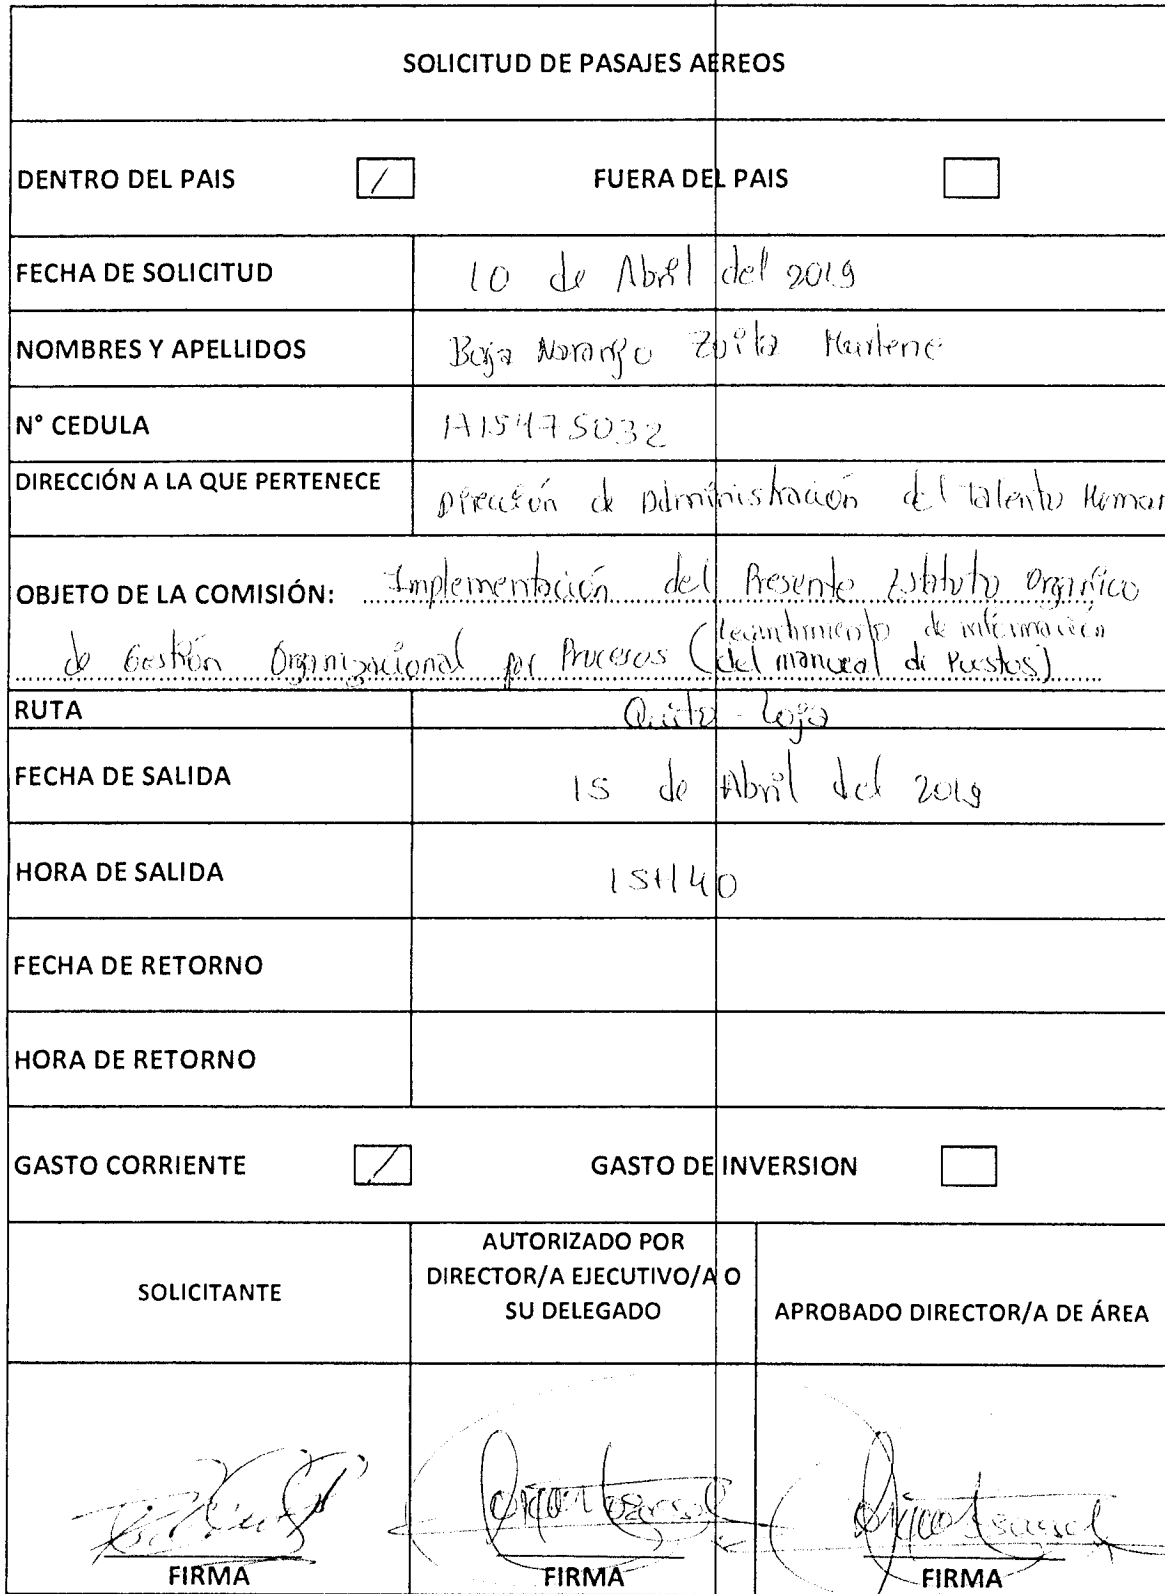 SOLICITUD DE PASAJES AEREOS
DENTRO DEL PAIS / FUERA DEL PAIS
FECHA DE SOLICITUD 10 de Abril del 2019
NOMBRES Y APELLIDOS Borja Naranjo Zoila Marlene
N° CEDULA 1715475032
DIRECCIÓN A LA QUE PERTENECE Dirección de Administración del Talento Human
OBJETO DE LA COMISIÓN: Implementación del Presente Estatuto Orgánico
de Gestión Organizacional por Procesos (levantamiento de información
del manual de Puestos)
RUTA Quito - Loja
FECHA DE SALIDA 15 de Abril del 2019
HORA DE SALIDA 15H40
FECHA DE RETORNO
HORA DE RETORNO
GASTO CORRIENTE / GASTO DE INVERSION
SOLICITANTE
AUTORIZADO POR
DIRECTOR/A EJECUTIVO/A O
SU DELEGADO
APROBADO DIRECTOR/A DE ÁREA
FIRMA FIRMA FIRMA